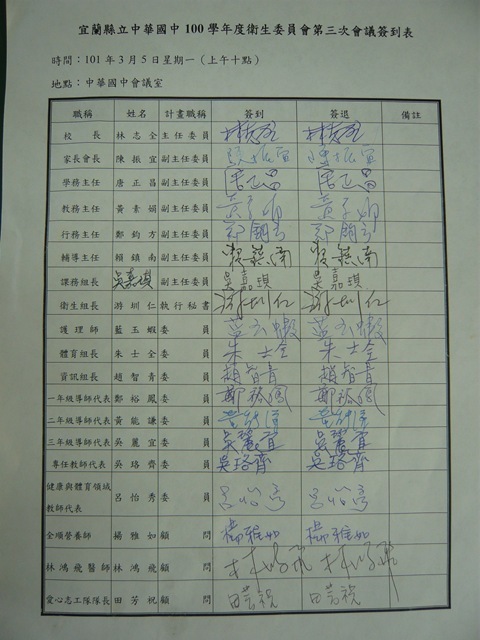 宜蘭縣立中華國中 100 學年度衛生委員會第三次會議簽到表
時間：101 年 3 月 5 日星期一（上午十點）
地點：中華國中會議室
職稱 姓名 計畫職稱 簽到 簽退 備註
校長 林志全 主任委員 林志全 林志全
家長會長 陳振宜 副主任委員 陳振宜 陳振宜
學務主任 唐正昌 副主任委員 唐正昌 唐正昌
教務主任 黃素娟 副主任委員
行務主任 鄭鈞方 副主任委員
輔導主任 賴鎮南 副主任委員 賴鎮南 賴鎮南
課務組長 吳嘉琪 副主任委員 吳嘉琪 吳嘉琪
衛生組長 游圳仁 執行秘書 游圳仁 游圳仁
護理師 藍玉蝦 委員 藍玉蝦 藍玉蝦
體育組長 朱士全 委員 朱士全 朱士全
資訊組長 趙智青 委員 趙智青 趙智青
一年級導師代表 鄭裕鳳 委員 鄭裕鳳 鄭裕鳳
二年級導師代表 黃能謙 委員
三年級導師代表 吳麗宜 委員 吳麗宜 吳麗宜
專任教師代表 吳珞齊 委員 吳珞齊 吳珞齊
健康與體育領域
教師代表 呂怡秀 委員 呂怡秀 呂怡秀
全順營養師 楊雅如 顧問 楊雅如 楊雅如
林鴻飛醫師 林鴻飛 顧問 林鴻飛 林鴻飛
愛心志工隊隊長 田芳祝 顧問 田芳祝 田芳祝